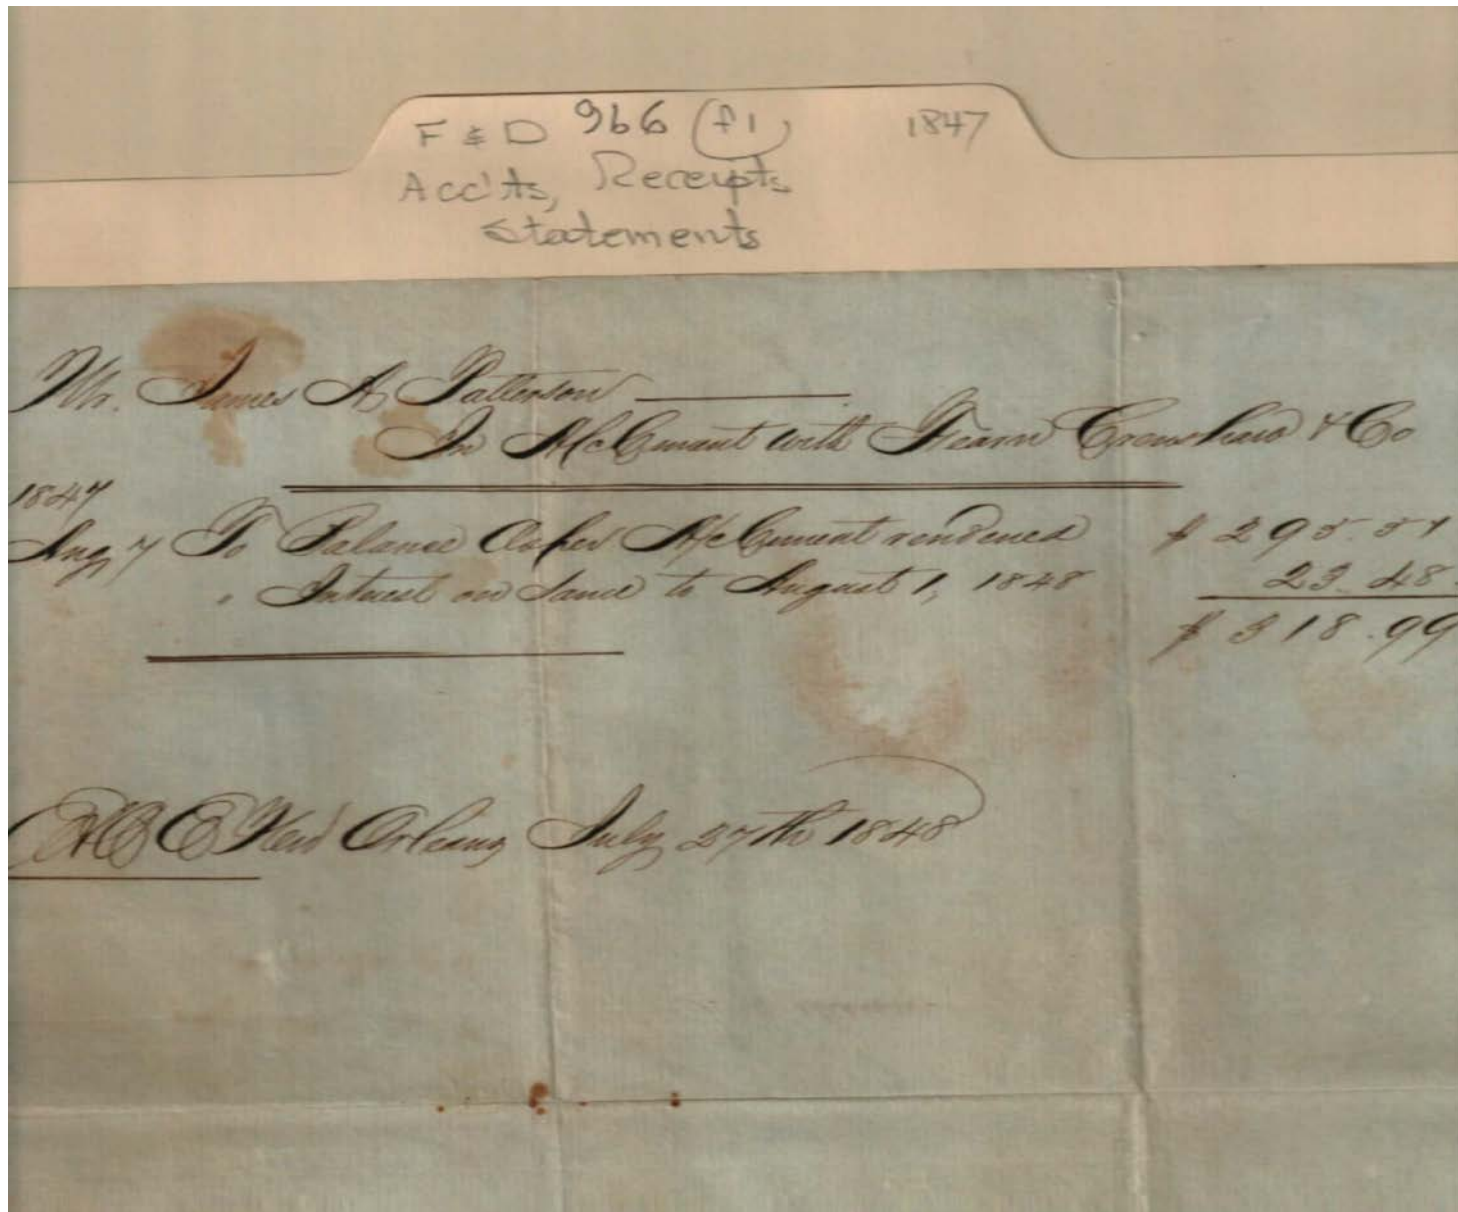 F & D 966 (f1) 1847
Acc'ts, Receipts
Statements
Mr. James A Patterson
In A/c Current with Fearn Crenshaw & Co
1847
Aug 7 To Balance As per A/c Current rendered $ 295.51
" Interest on Same to August 1, 1848 23.48
$ 318.99
E & O E New Orleans July 27th 1848